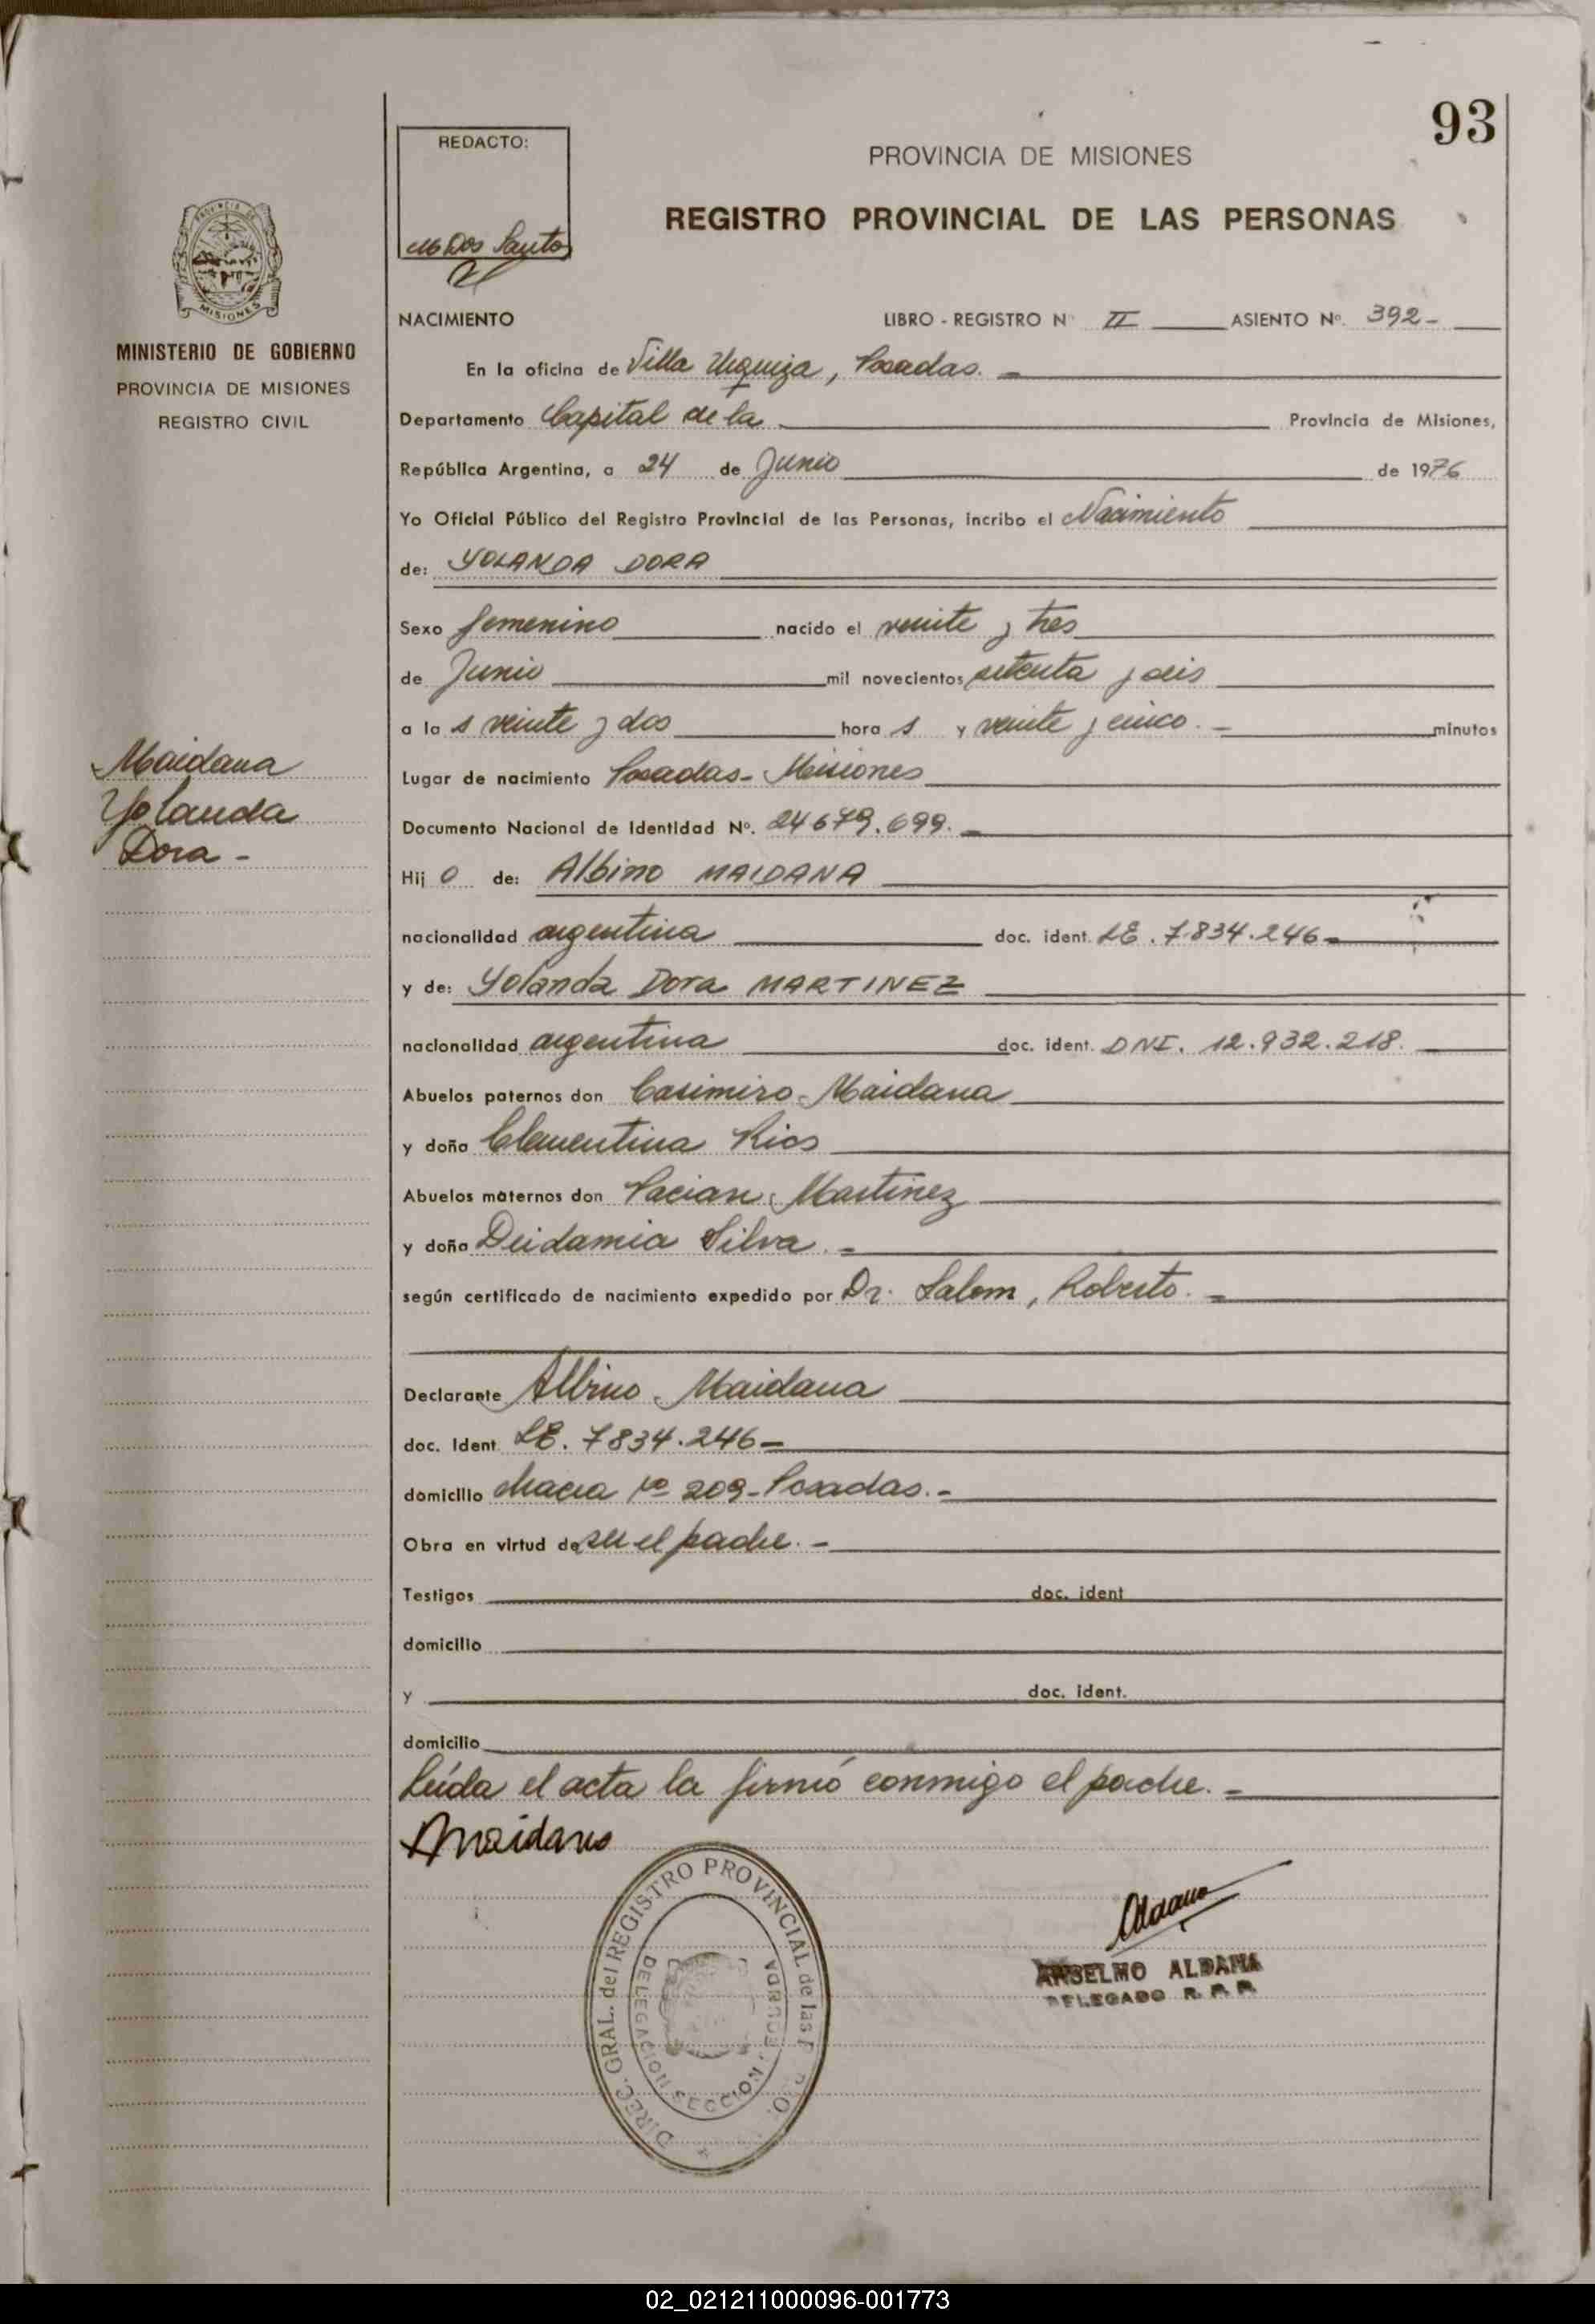 93
REDACTO:
Dos Santos
PROVINCIA DE MISIONES
REGISTRO PROVINCIAL DE LAS PERSONAS
PROVINCIA DE
MISIONES
MINISTERIO DE GOBIERNO
PROVINCIA DE MISIONES
REGISTRO CIVIL
NACIMIENTO LIBRO - REGISTRO N° II ASIENTO Nº. 392-
En la oficina de Villa Urquiza, Posadas. -
Departamento Capital de la Provincia de Misiones,
República Argentina, a 24 de Junio de 1976
Yo Oficial Público del Registro Provincial de las Personas, incribo el Nacimiento
de: YOLANDA DORA
Sexo femenino nacido el veinte y tres
de Junio mil novecientos setenta y seis
a la s veinte y dos hora s y veinte y cinco. - minutos
Lugar de nacimiento Posadas- Misiones
Documento Nacional de Identidad Nº. 24679.699. -
Hij o de: Albino MAIDANA
nacionalidad argentina doc. ident. LE. 7.834.246-
y de: Yolanda Dora MARTINEZ
nacionalidad argentina doc. ident. DNI. 12.932.218.
Abuelos paternos don Casimiro Maidana
y doña Clementina Rios
Abuelos maternos don Martinez
y doña Deidamia Silva. -
según certificado de nacimiento expedido por Dr. Salom, Roberto. -
Declarante Albino Maidana
doc. Ident. LE. 7834.246-
domicilio chacra nº 209- Posadas. -
Obra en virtud de ser el padre. -
Testigos doc. ident
domicilio
y doc. ident.
domicilio
Leída el acta la firmó conmigo el padre. -
Maidana
Maidana
Yolanda
Dora -
DIREC. GRAL. del REGISTRO PROVINCIAL de las
DELEGACION SECCION
Aldana
ANSELMO ALDANA
DELEGADO R. P. P.
02_021211000096-001773